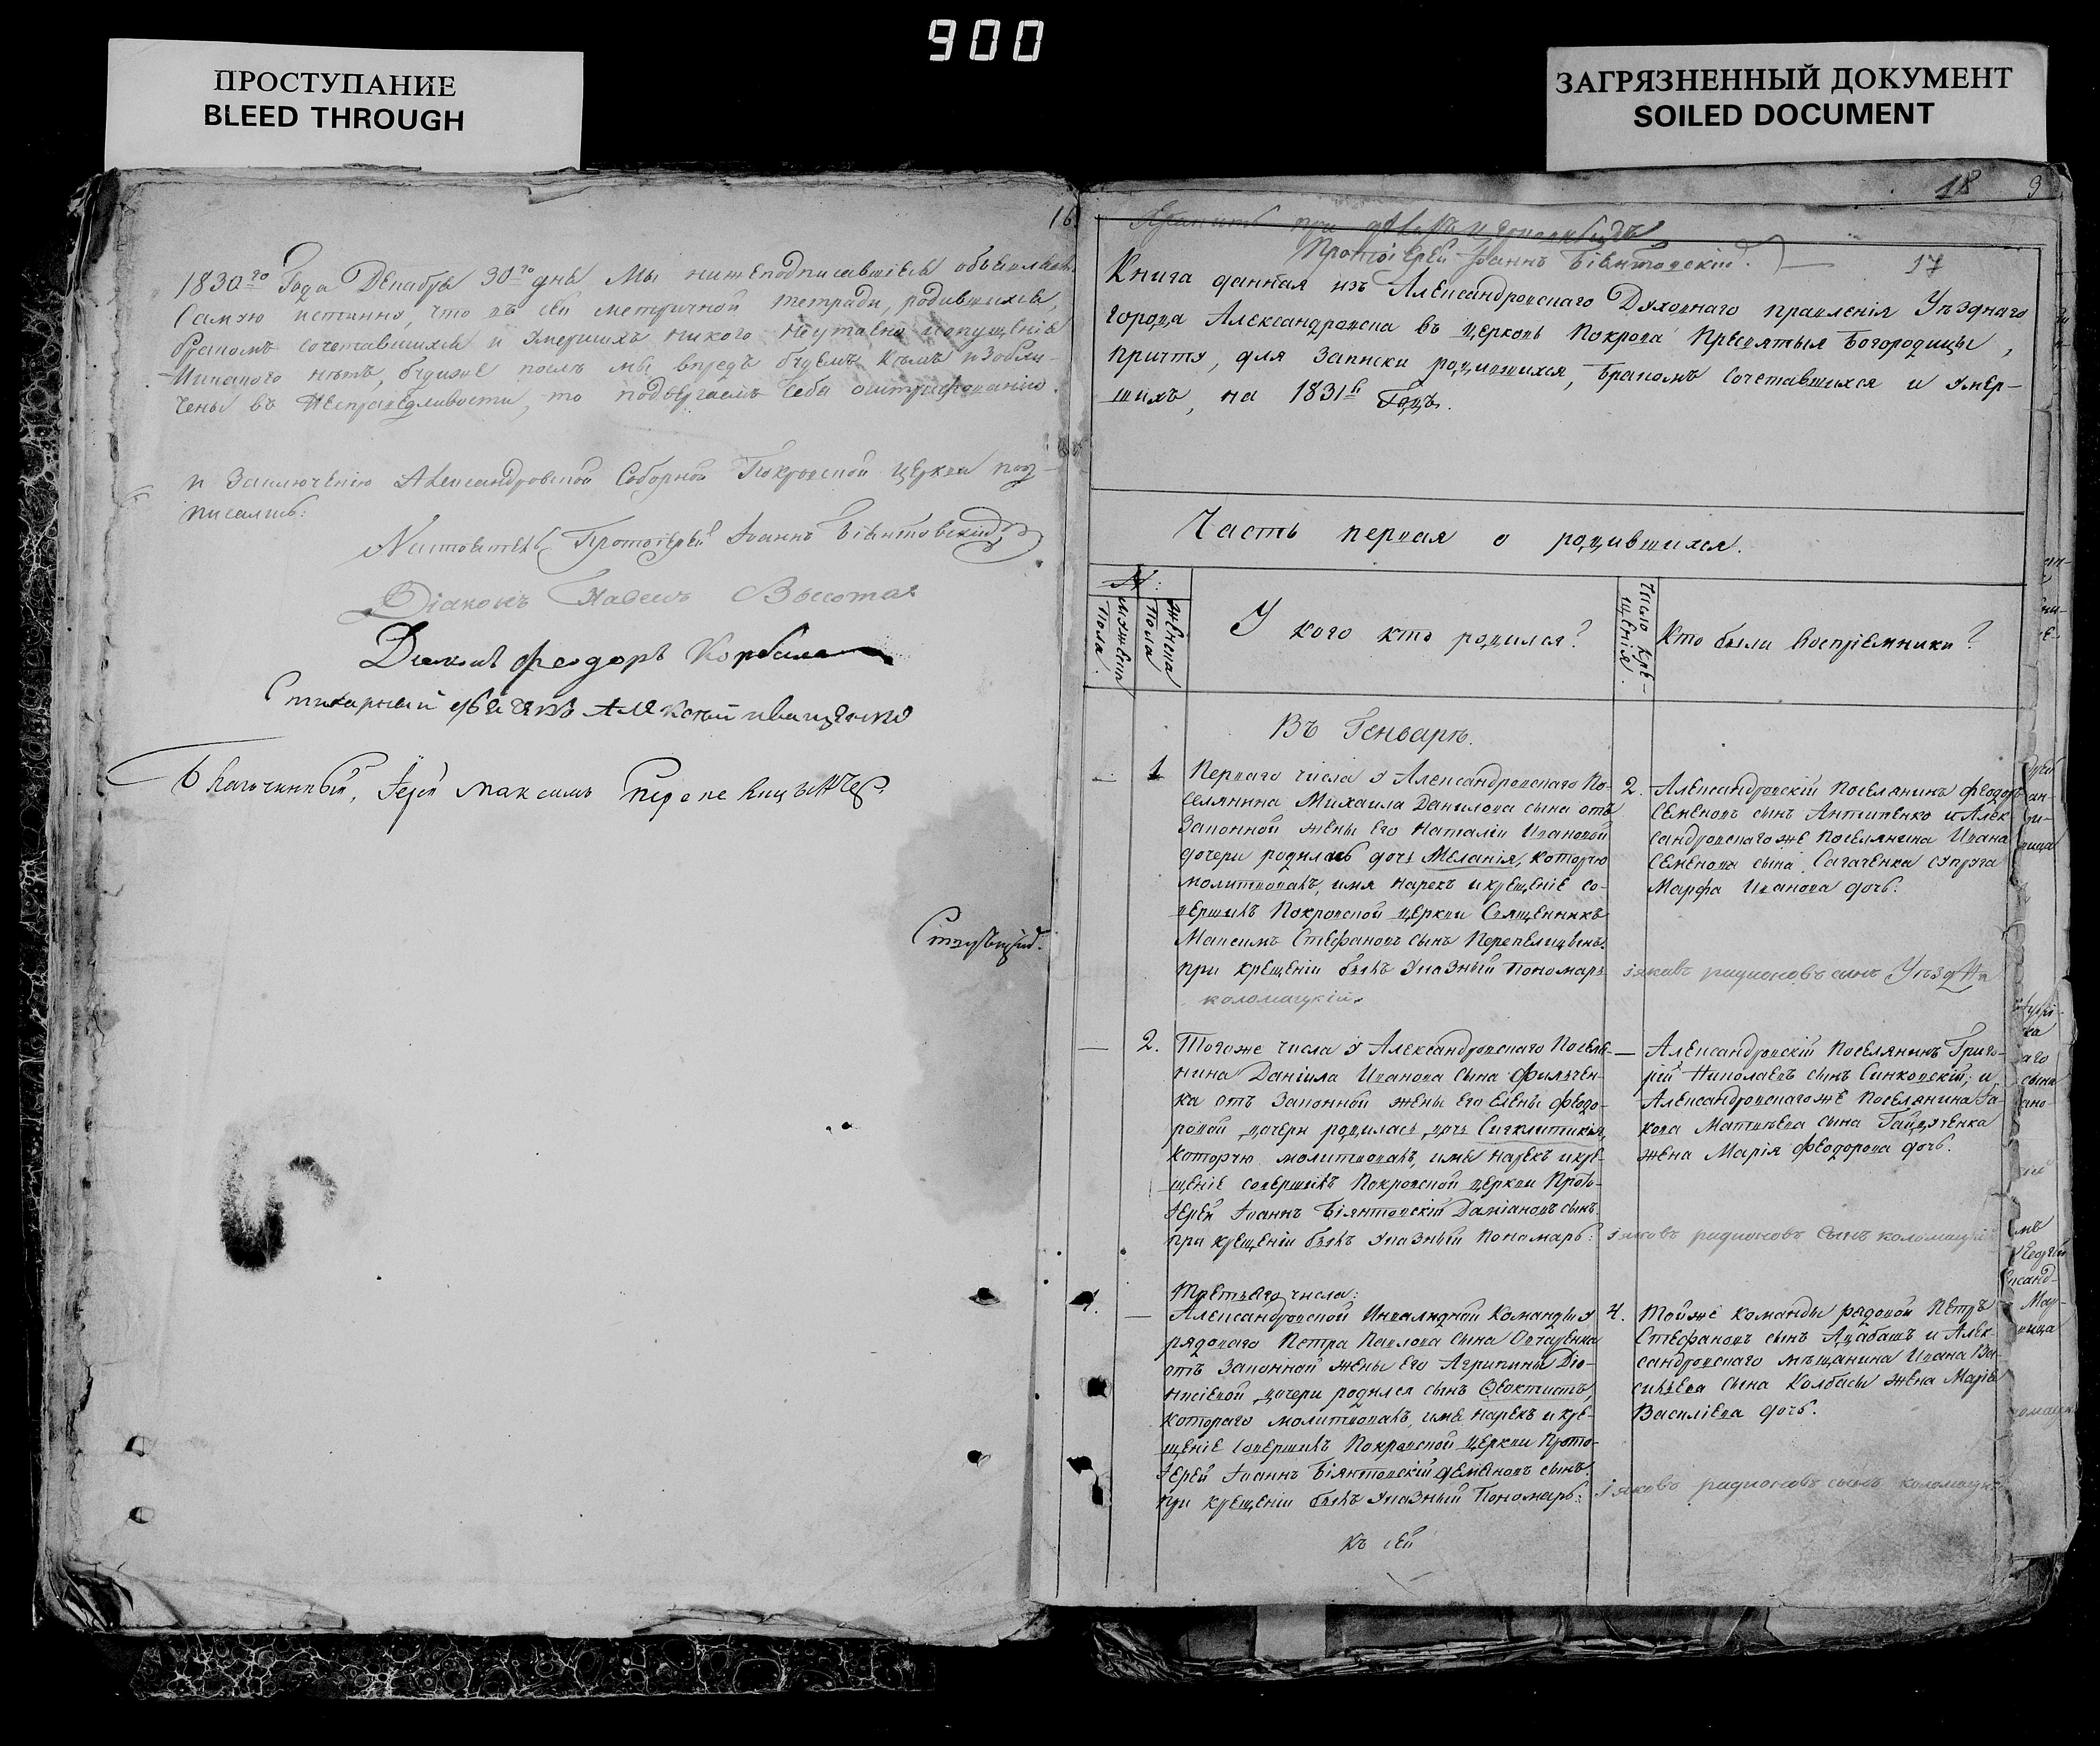 900
ПРОСТУПАНИЕ
BLEED THROUGH
ЗАГРЯЗНЕННЫЙ ДОКУМЕНТ
SOILED DOCUMENT
16
1830го Года Декабря 30го дня Мы нижеподписавшіеся объявляемъ
самую истинну, что въ сей метричной тетради, родившихся,
бракомъ сочетавшихся и умершихъ никого неутаено и опущенія
никакого нѣтъ, будиже послѣ мы впредь будемъ кѣмъ изобли-
чены въ несправедливости, то подвергаемъ себя оштрафованію.
к заключенію Александровской Соборной Покровской Церкви под-
писались:
Настоятель Протоіерей Іоаннъ Біянтовскій
Діаконъ Павелъ Высота
Діаконъ Феодоръ Корбала
Стихарный Алексій иващенко
Благочинный, Іерей Максимъ Перепелицынъ
18 9
при
Протоіерей Іоаннъ Біянтовскій.
17
Книга данная изъ Александровскаго Духовнаго правленія Уѣзднаго
города Александровска въ церковь Покрова Пресвятыя Богородицы,
причту, для записки родившихся, бракомъ сочетавшихся и умер-
шихъ, на 1831й Годъ.
Часть первая о родившихся.
№:
Мужеска Пола.
Женска Пола
У кого кто родился?
Число Кре-
щенія.
Кто были Воспріемники?
Въ Генварѣ.
— 1
Перваго числа у Александровскаго По-
селянина Михаила Данилова сына отъ
Законной жены Его Наталіи Ивановой
дочери родилась дочь Меланія, которую
молитвовалъ, имя нарекъ и крещеніе со-
вершилъ Покровской церкви Священникъ
Максимъ Стефановъ сынъ Перепелицынъ.
при крещеніи былъ Указный Пономарь
коломацкій.
2. Александровскій Поселянинъ Феодоръ
Семеновъ сынъ Антипенко и Алек-
сандровскаго же поселянина Ивана
Семенова сына Сагаченка супруга
Марфа Иванова дочь.
іяковъ радионовъ сынъ
— 2.
Тогоже числа у Александровскаго Поселя-
нина Даніила Иванова сына Фильчен-
ка отъ Законной жены Его Елены Феодо-
ровой дочери родилась дочь Сигклитикія,
которую молитвовалъ, имя нарекъ и кре-
щеніе совершилъ Покровской церкви Прото-
іерей Іоаннъ Біянтовскій Даміановъ сынъ.
при крещеніи былъ Указный Пономарь:
— Александровскій Поселянинъ Григо-
рій Николаевъ сынъ Синковскій; и
Александровскагоже Поселянина Іа-
кова Матвѣева сына Гайдученка
жена Марія Феодорова дочь.
іяковъ радионовъ сынъ коломацкій
1. —
Третьяго числа:
Александровской Инвалидной Команды у
рядоваго Петра Павлова сына Овчаренка
отъ Законной жены Его Агрипины Діо-
нисіевой дочери родился сынъ Феоктистъ,
котораго молитвовалъ, имя нарекъ и кре-
щеніе совершилъ Покровской церкви Прото-
іерей Іоаннъ Біянтовскій Деміановъ сынъ.
при крещеніи былъ Указный Пономарь:
4. Тойже команды рядовой Петръ
Стефановъ сынъ Адабашъ и Алек-
сандровскаго мѣщанина Ивана Ва-
сильева сына Колбасы жена Марія
Василіева дочь.
іяковъ радионовъ сынъ коломацкій
Къ сей